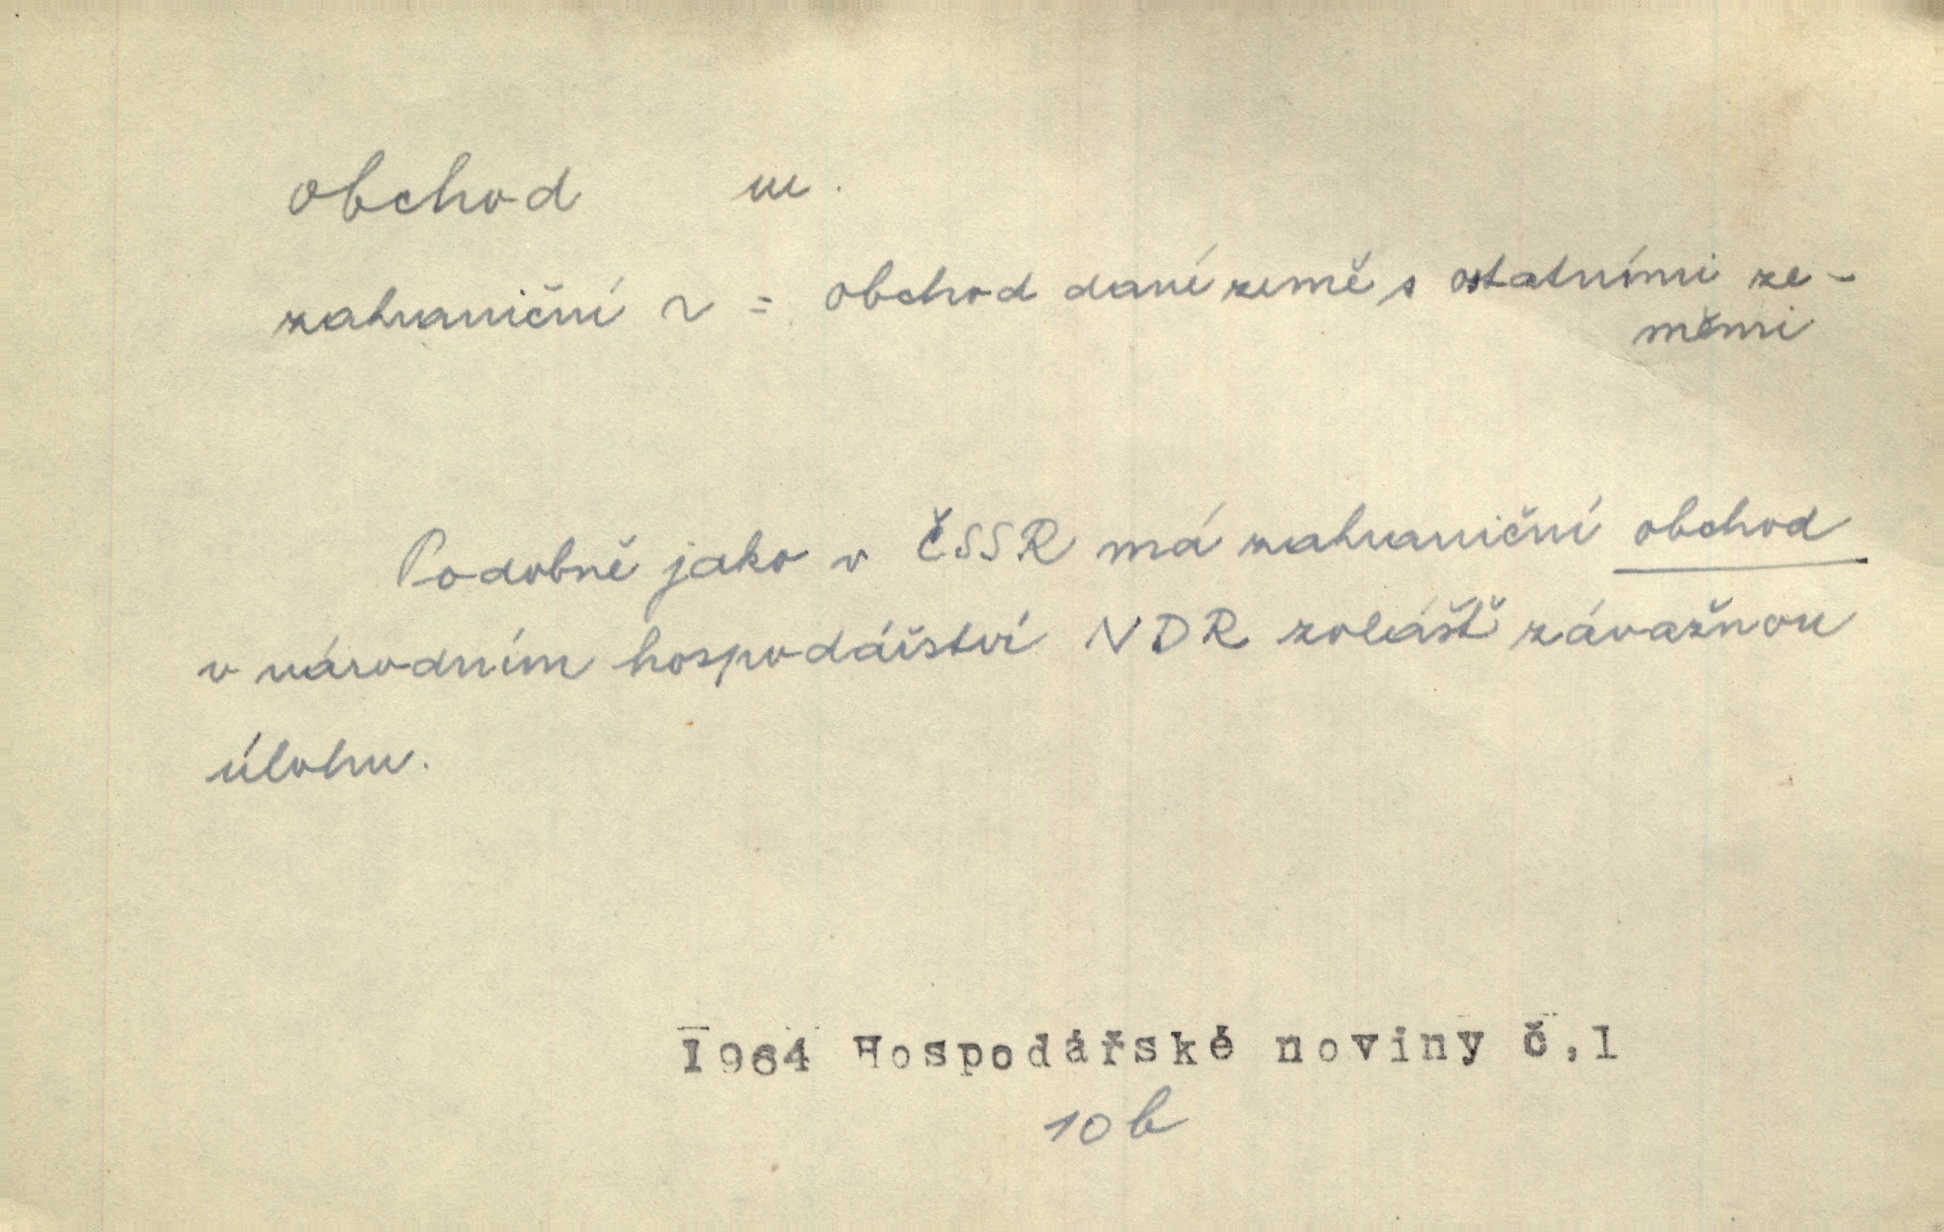 obchod m.
zahraniční ~ = obchod dané země s ostatními ze-
měmi
Podobně jako v ČSSR má zahraniční obchod
v národním hospodářství NDR zvlášť závažnou
úlohu.
1964 Hospodářské noviny č.1
10 b